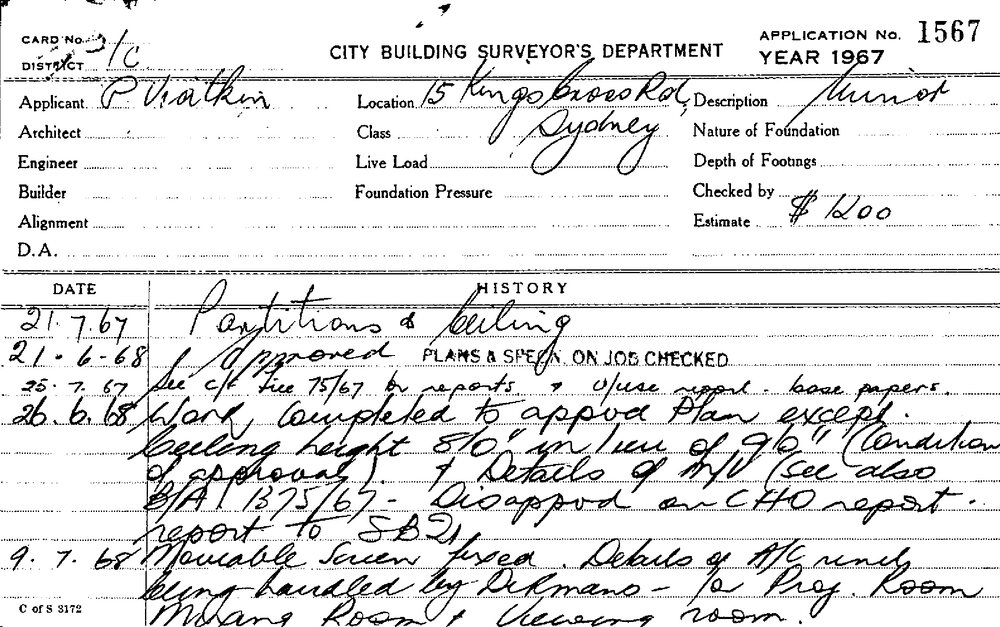 CARD No.
DISTRICT
CITY BUILDING SURVEYOR'S DEPARTMENT
APPLICATION No. 1567
YEAR 1967
Applicant P Viatkin
Location 15 Kings Cross Rd, Sydney
Description Minor
Architect
Class
Nature of Foundation
Engineer
Live Load
Depth of Footings
Builder
Foundation Pressure
Checked by
Alignment
Estimate $1200
D.A.
DATE HISTORY
21.7.67 Partitions & Ceiling
21.6-68 Approved PLANS & SPECN. ON JOB CHECKED
25.7.67 See c/f File 75/67 for reports & U/use report. base papers.
26.6.68 Work completed to appvd Plan except.
Ceiling height 8'0" in lieu of 9'0" (Condition
of approval). & Details of M/V (see also
B/A 1375/67 - Disappvd on CHO report.
report to SB21
9.7.68 Moveable Screen fixed. Details of A/C
being handled by - Proj. Room
Room & Viewing room.
C of S 3172